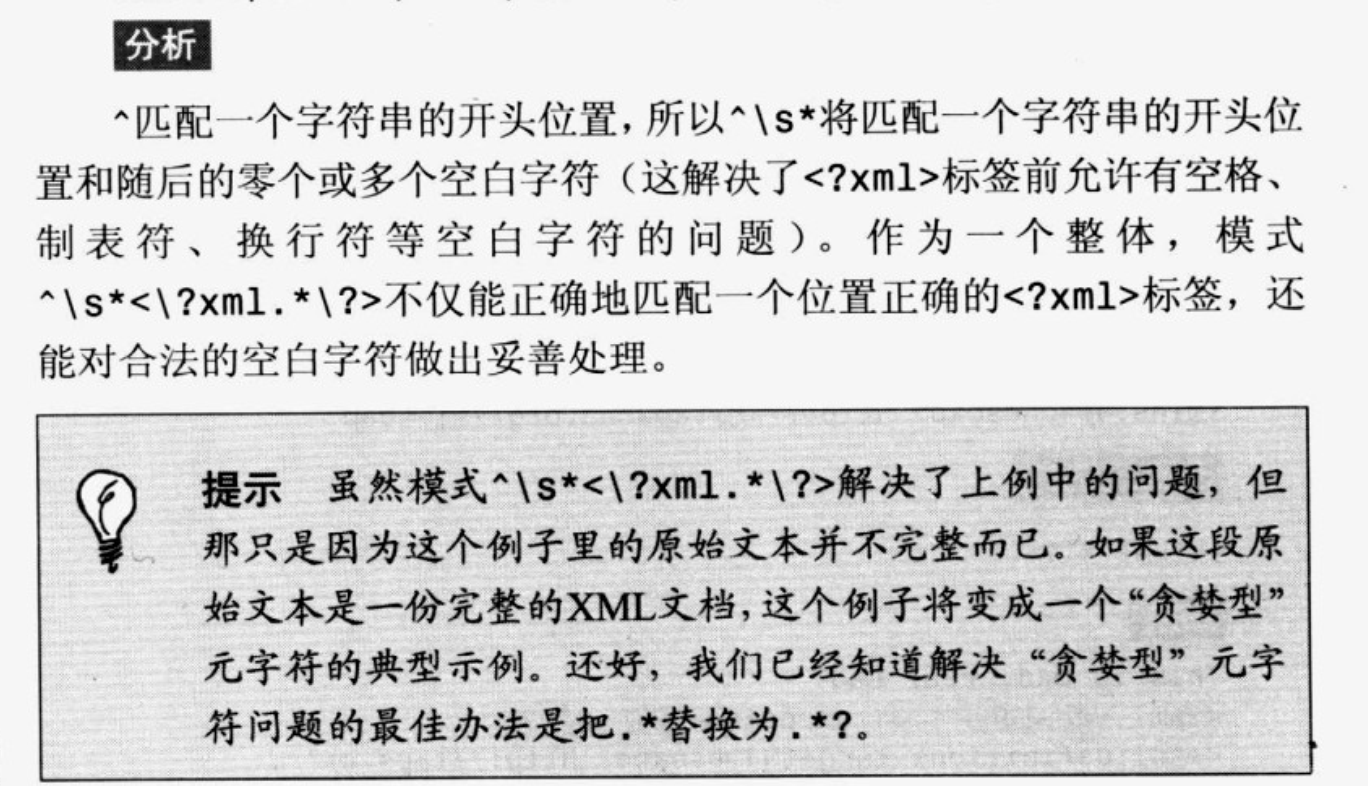 分析
^匹配一个字符串的开头位置，所以^\s*将匹配一个字符串的开头位
置和随后的零个或多个空白字符（这解决了<?xml>标签前允许有空格、
制表符、换行符等空白字符的问题）。作为一个整体，模式
^\s*<\?xml.*\?>不仅能正确地匹配一个位置正确的<?xml>标签，还
能对合法的空白字符做出妥善处理。
提示 虽然模式^\s*<\?xml.*\?>解决了上例中的问题，但
那只是因为这个例子里的原始文本并不完整而已。如果这段原
始文本是一份完整的XML文档，这个例子将变成一个“贪婪型”
元字符的典型示例。还好，我们已经知道解决“贪婪型”元字
符问题的最佳办法是把.*替换为.*?。